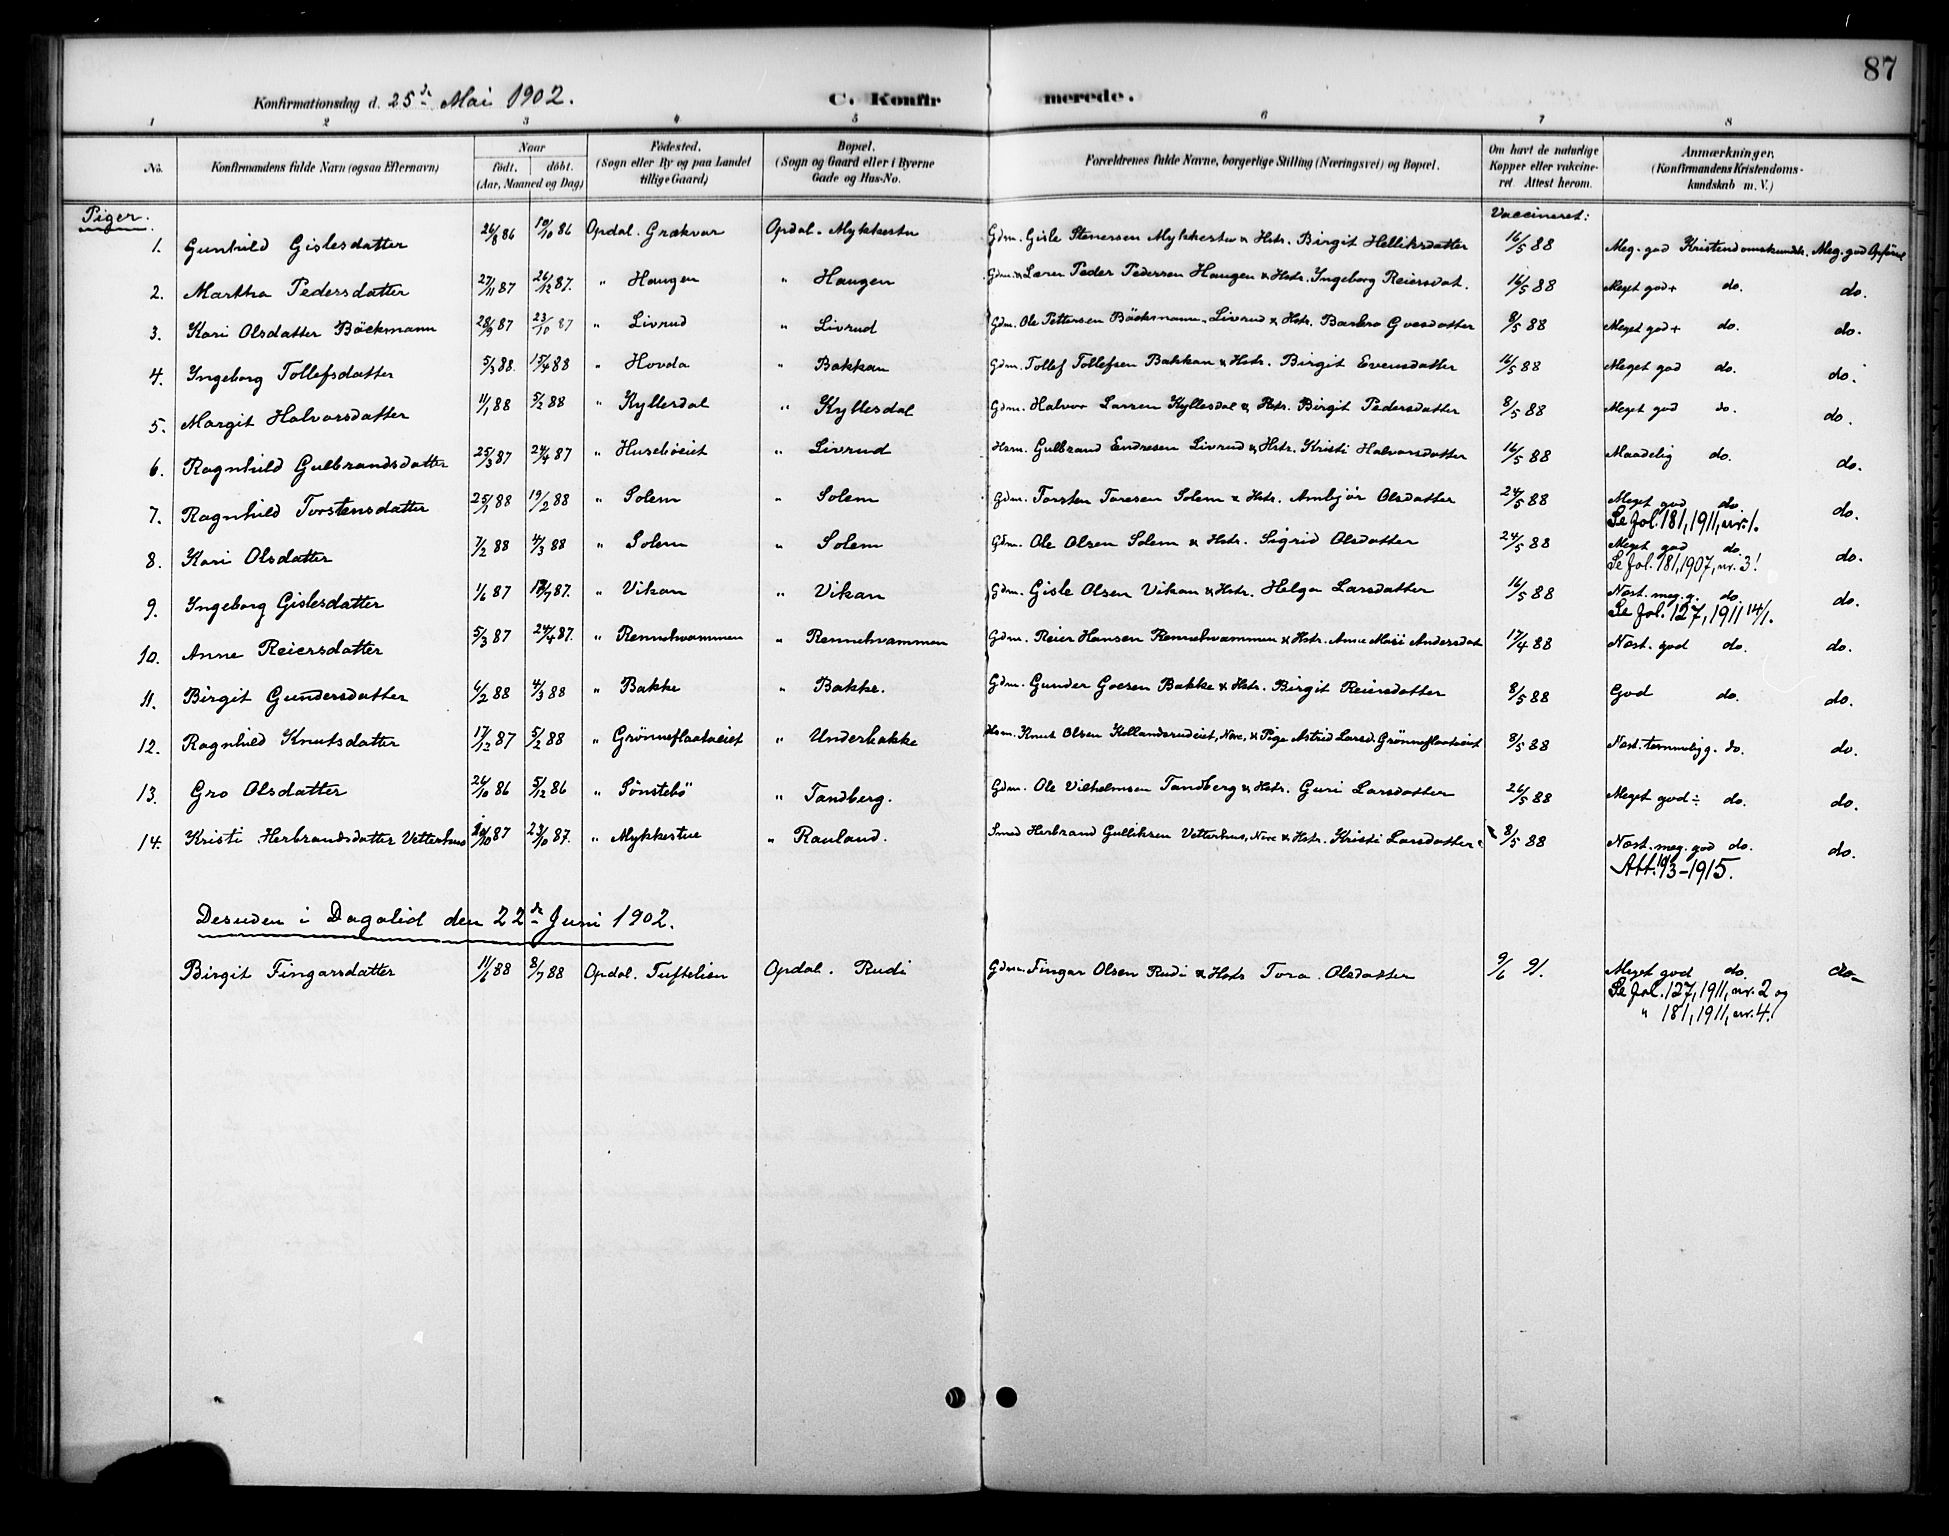 87
Konfirmationsdag d. 25de Mai 1902. C. Konfirmerede.
1 2 3 4 5 6 7 8
No. Konfirmandens fulde Navn (ogsaa Efternavn) Naar født. døbt. (Aar, Maaned og Dag) Fødested. (Sogn eller By og paa Landet tillige Gaard) Bopæl. (Sogn og Gaard eller i Byerne Gade og Hus-No. Forældrenes fulde Navne, borgerlige Stilling (Næringsvei) og Bopæl. Om havt de naturlige Kopper eller vakcineret. Attest herom. Anmærkninger. (Konfirmandens Kristendomskundskab m. V.)
Piger. Vaccineret:
1. Gunhild Gislesdatter 26/8 86 10/10 86 Opdal. Grækvar Opdal. Mykkestu Gdm. Gisle Stenersen Mykkestu & Hstr. Birgit Helliksdatter 16/5 88 Meg. god Kristendomskundsk. Meg. god Opførsel
2. Martha Pedersdatter 27/11 87 26/12 87. " Haugen " Haugen Gdm. & Lærer Peder Pedersen Haugen & Hstr. Ingeborg Reiersdat. 16/5 88 Meget god + do. do.
3. Kari Olsdatter Bäckmann 28/9 87 23/10 87 " Livrud " Livrud Gdm. Ole Pettersen Bäckmann, Livrud & Hstr. Barbro Goesdatter 8/5 88 Meget god + do. do.
4. Ingeborg Tollefsdatter 5/3 88. 15/4 88 " Hovda " Bakkan Gdm. Tollef Tollefsen Bakkan & Hstr. Birgit Evensdatter 16/5 88 Meget god do. do.
5. Margit Halvorsdatter 11/1 88 5/2 88 " Kyllesdal " Kyllesdal Gdm. Halvor Larsen Kyllesdal & Hstr. Birgit Pedersdatter 8/5 88 Meget god do. do.
6. Ragnhild Gulbrandsdatter 25/3 87 24/4 87 " Husebøeiet " Livrud Hsm. Gulbrand Endresen Livrud & Hstr. Kristi Halvorsdatter 16/5 88 Maadelig do. do.
7. Ragnhild Torstensdatter 25/1 88 19/2 88 " Solem " Solem Gdm. Torsten Toresen Solem & Hstr. Ambjør Olsdatter 24/5 88 Meget god do. do.
Se fol. 181, 1911, nr. 1.
8. Kari Olsdatter 7/2 88 4/3 88 " Solem " Solem Gdm. Ole Olsen Solem & Hstr. Sigrid Olsdatter 24/5 88 Meget god do. do.
Se fol. 181, 1907, nr. 3!
9. Ingeborg Gislesdatter 1/6 87 /7 87. " Vikan " Vikan Gdm. Gisle Olsen Vikan & Hstr. Helga Larsdatter 16/5 88 Næst. meg. g. do. do.
Se fol. 127, 1911 14/1.
10. Anne Reiersdatter 5/3 87 24/4 87. " Rennehvammen " Rennehvammen Gdm. Reier Hansen Rennehvammen & Hstr. Anne Mari Andersdat 17/4 88 Næst. god do. do.
11. Birgit Gundersdatter 6/2 88 4/3 88 " Bakke " Bakke. Gdm. Gunder Goesen Bakke & Hstr. Birgit Reiersdatter 8/5 88 God do. do.
12. Ragnhild Knutsdatter 17/12 87 5/2 88 " Grønneflaataeiet " Underbakke Hsm. Knut Olsen Kollandsrudeiet, Nore, & Pige Astrid Larsd. Grønneflaataeiet 8/5 88 Næst. temmelig g. do. do.
13. Gro Olsdatter 24/10 86 5/12 86 " Sønstebø " Tandberg. Gdm. Ole Vilhelmsen Tandberg & Hstr. Guri Larsdatter 26/5 88 Meget god ÷ do. do.
14. Kristi Herbrandsdatter Vetterhus /10 87 23/10 87. " Mykkestue " Rauland. Smed Herbrand Gulliksen Vetterhus, Nore & Hstr. Kristi Larsdatter. 8/5 88 Næst. meg. god do. do.
Att. 19/3-1915.
Desuden i Dagalid den 22de Juni 1902.
Birgit Fingarsdatter 11/6 88 8/7 88 Opdal. Tuftelien Opdal. Rudi Gdm. Fingar Olsen Rudi & Hstr Tora Olsdatter 9/6 91. Meget god do. do.
Se fol. 127, 1911, nr. 2 og
" 181, 1911, nr. 4!